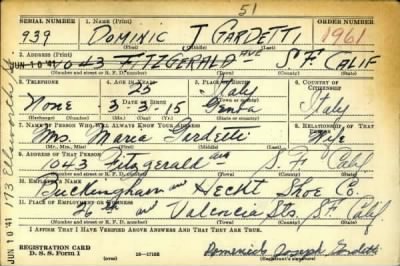 51
SERIAL NUMBER 1. NAME (Print) ORDER NUMBER
939 DOMINIC J GARDETTI 1961
(First) (Middle) (Last)
2. ADDRESS (Print)
JUN 10 '41 1043 FITZGERALD AVE S F CALIF
(Number and street or R. F. D. number) (Town) (County) (State)
3. TELEPHONE 4. AGE IN YEARS 5. PLACE OF BIRTH 6. COUNTRY OF CITIZENSHIP
25 Italy
None 3-3-15 Genoa Italy
(Exchange) (Number) (Mo.) (Day) (Yr.) (State or country)
7. NAME OF PERSON WHO WILL ALWAYS KNOW YOUR ADDRESS 8. RELATIONSHIP OF THAT PERSON
Mrs. Maria Gardetti Wife
(Mr., Mrs., Miss) (First) (Middle) (Last)
9. ADDRESS OF THAT PERSON
1043 Fitzgerald ave S. F. Calif
(Number and street or R. F. D. number) (Town) (County) (State)
10. EMPLOYER'S NAME
Buckingham and Hecht Shoe Co.
11. PLACE OF EMPLOYMENT OR BUSINESS
26th and Valencia Sts S.F. Calif.
(Number and street or R. F. D. number) (Town) (County) (State)
I AFFIRM THAT I HAVE VERIFIED ABOVE ANSWERS AND THAT THEY ARE TRUE.
REGISTRATION CARD
D. S. S. Form 1 (over) 16—17105 Domenick Joseph Gardetti
(Registrant's signature)
173 Ellsworth
JUN 10 '41